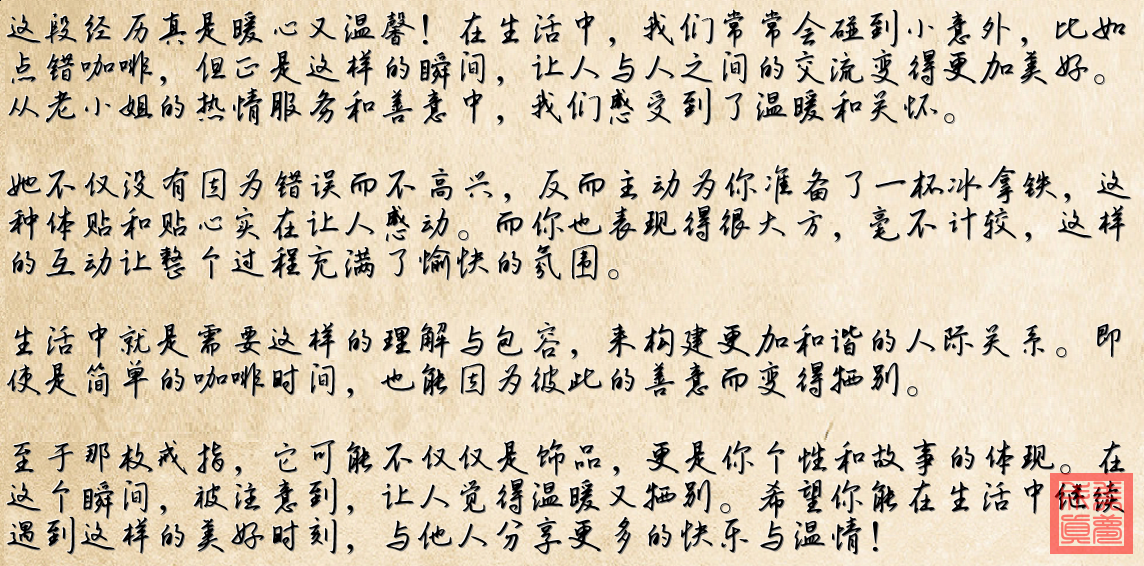 这段经历真是暖心又温馨！在生活中，我们常常会碰到小意外，比如
点错咖啡，但正是这样的瞬间，让人与人之间的交流变得更加美好。
从老小姐的热情服务和善意中，我们感受到了温暖和关怀。
她不仅没有因为错误而不高兴，反而主动为你准备了一杯冰拿铁，这
种体贴和贴心实在让人感动。而你也表现得很大方，毫不计较，这样
的互动让整个过程充满了愉快的氛围。
生活中就是需要这样的理解与包容，来构建更加和谐的人际关系。即
使是简单的咖啡时间，也能因为彼此的善意而变得特别。
至于那枚戒指，它可能不仅仅是饰品，更是你个性和故事的体现。在
这个瞬间，被注意到，让人觉得温暖又特别。希望你能在生活中继续
遇到这样的美好时刻，与他人分享更多的快乐与温情！